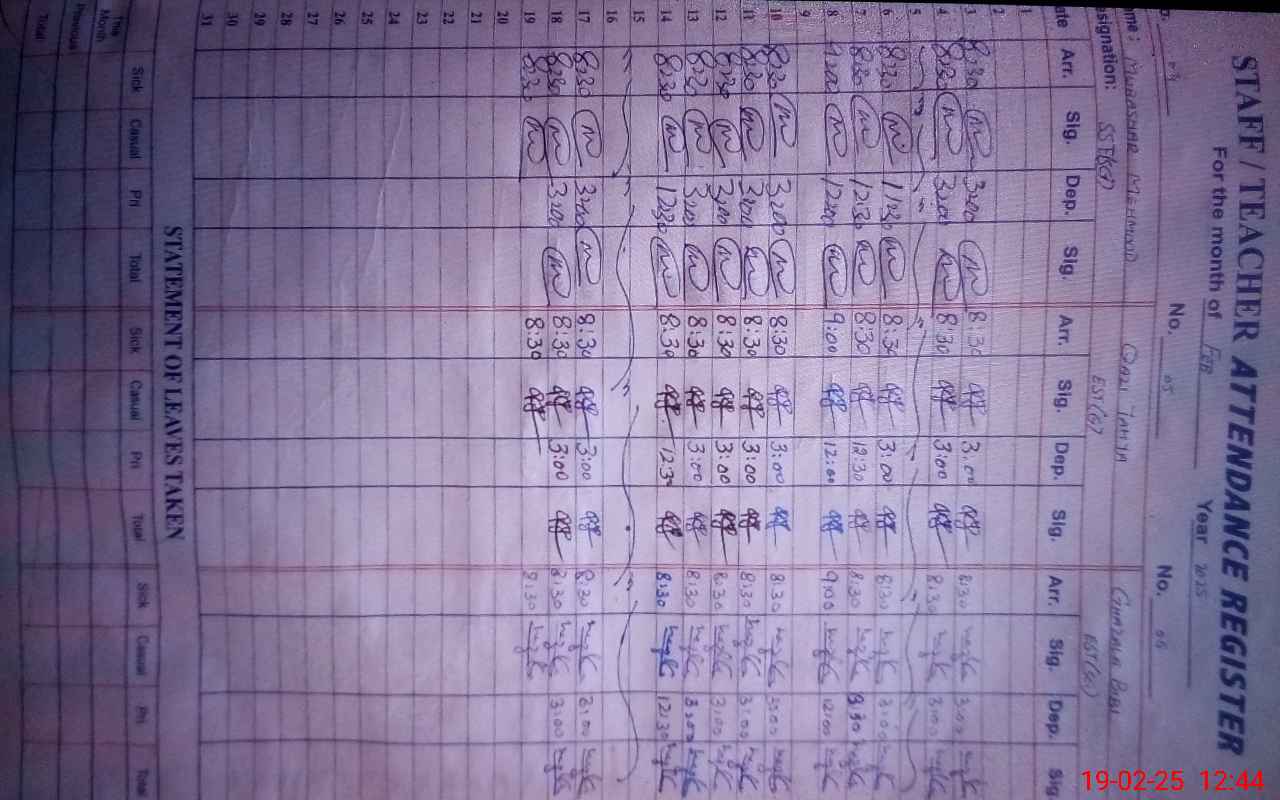 STAFF / TEACHER ATTENDANCE REGISTER
For the month of FEB Year 2025
No. 05 No. 06
me: MUDASHAR MEHMOOD QAZI YAHYA GHAZALA BIBI
signation: SST(G) EST(G) EST(G)
ate Arr. Sig. Dep. Sig. Arr. Sig. Dep. Sig. Arr. Sig. Dep. Sig
1
2
3 8:30 3:00 8:30 3:00 8:30 3:00
4 8:30 3:00 8:30 3:00 8:30 3:00
5
6 8:30 11:30 8:30 3:00 8:30 3:00
7 8:30 12:30 8:30 12:30 8:30
8 9:00 12:00 9:00 12:00 9:00 12:00
9
10 8:30 3:00 8:30 3:00 8:30 3:00
11 8:30 3:00 8:30 3:00 8:30 3:00
12 8:30 3:00 8:30 3:00 8:30 3:00
13 8:30 3:00 8:30 3:00 8:30 3:00
14 8:30 12:30 8:30 12:30 8:30 12:30
15
16
17 8:30 3:00 8:30 3:00 8:30 3:00
18 8:30 3:00 8:30 3:00 8:30 3:00
19 8:30 8:30 8:30
20
21
22
23
24
25
26
27
28
29
30
31
STATEMENT OF LEAVES TAKEN
Sick Casual Pri Total Sick Casual Pri Total Sick Casual Pri Total
The Month
Previous
Total
19-02-25 12:44